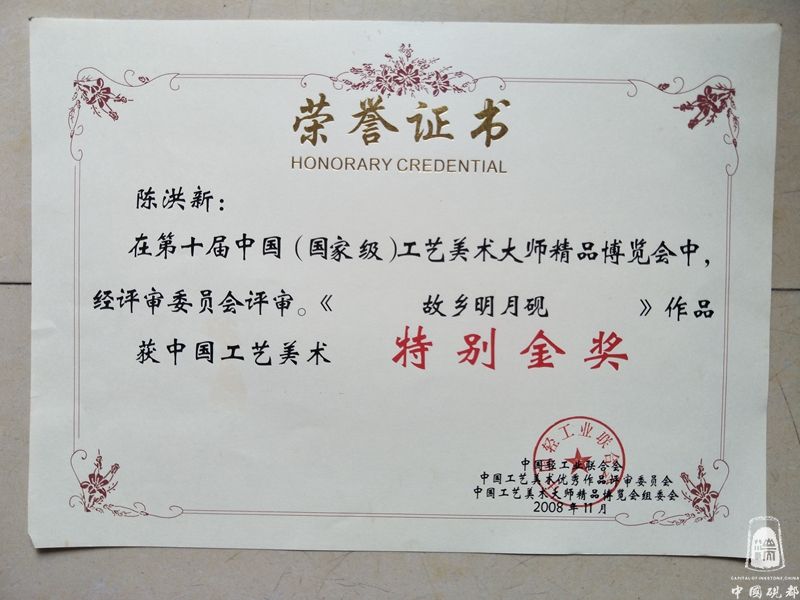 荣誉证书
HONORARY CREDENTIAL
陈洪新：
在第十届中国（国家级）工艺美术大师精品博览会中，
经评审委员会评审。《故乡明月砚》作品
获中国工艺美术 特别金奖
中国轻工业联合会
中国轻工业联合会
中国工艺美术优秀作品评审委员会
中国工艺美术大师精品博览会组委会
2008年11月
CAPITAL OF INKSTONE, CHINA
中國砚都